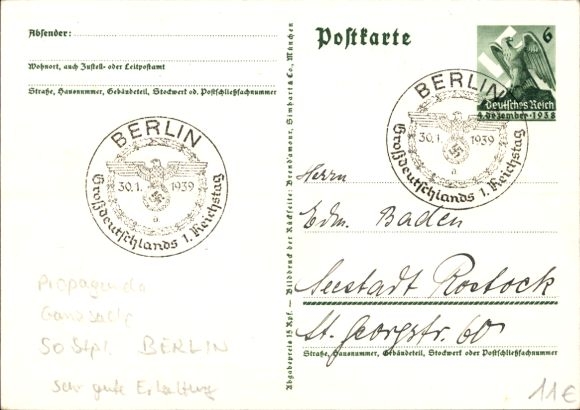 Absender:
Wohnort, auch Zustell- oder Leitpostamt
Straße, Hausnummer, Gebäudeteil, Stockwerk od. Postschließfachnummer
Postkarte
6
Deutsches Reich
4. Dezember 1938
BERLIN
30.1. 1939
a
Großdeutschlands 1. Reichstag
BERLIN
30.1. 1939
a
Großdeutschlands 1. Reichstag
Abgabepreis 15 Rpf. — Bilddruck der Rückseite: Brend'amour, Simhart & Co., München
Herrn
Edm. Baden
Seestadt Rostock
St. Georgstr. 60
Straße, Hausnummer, Gebäudeteil, Stockwerk oder Postschließfachnummer
Propaganda
Ganzsache
SoStpl. BERLIN
Sehr gute Erhaltung
11€